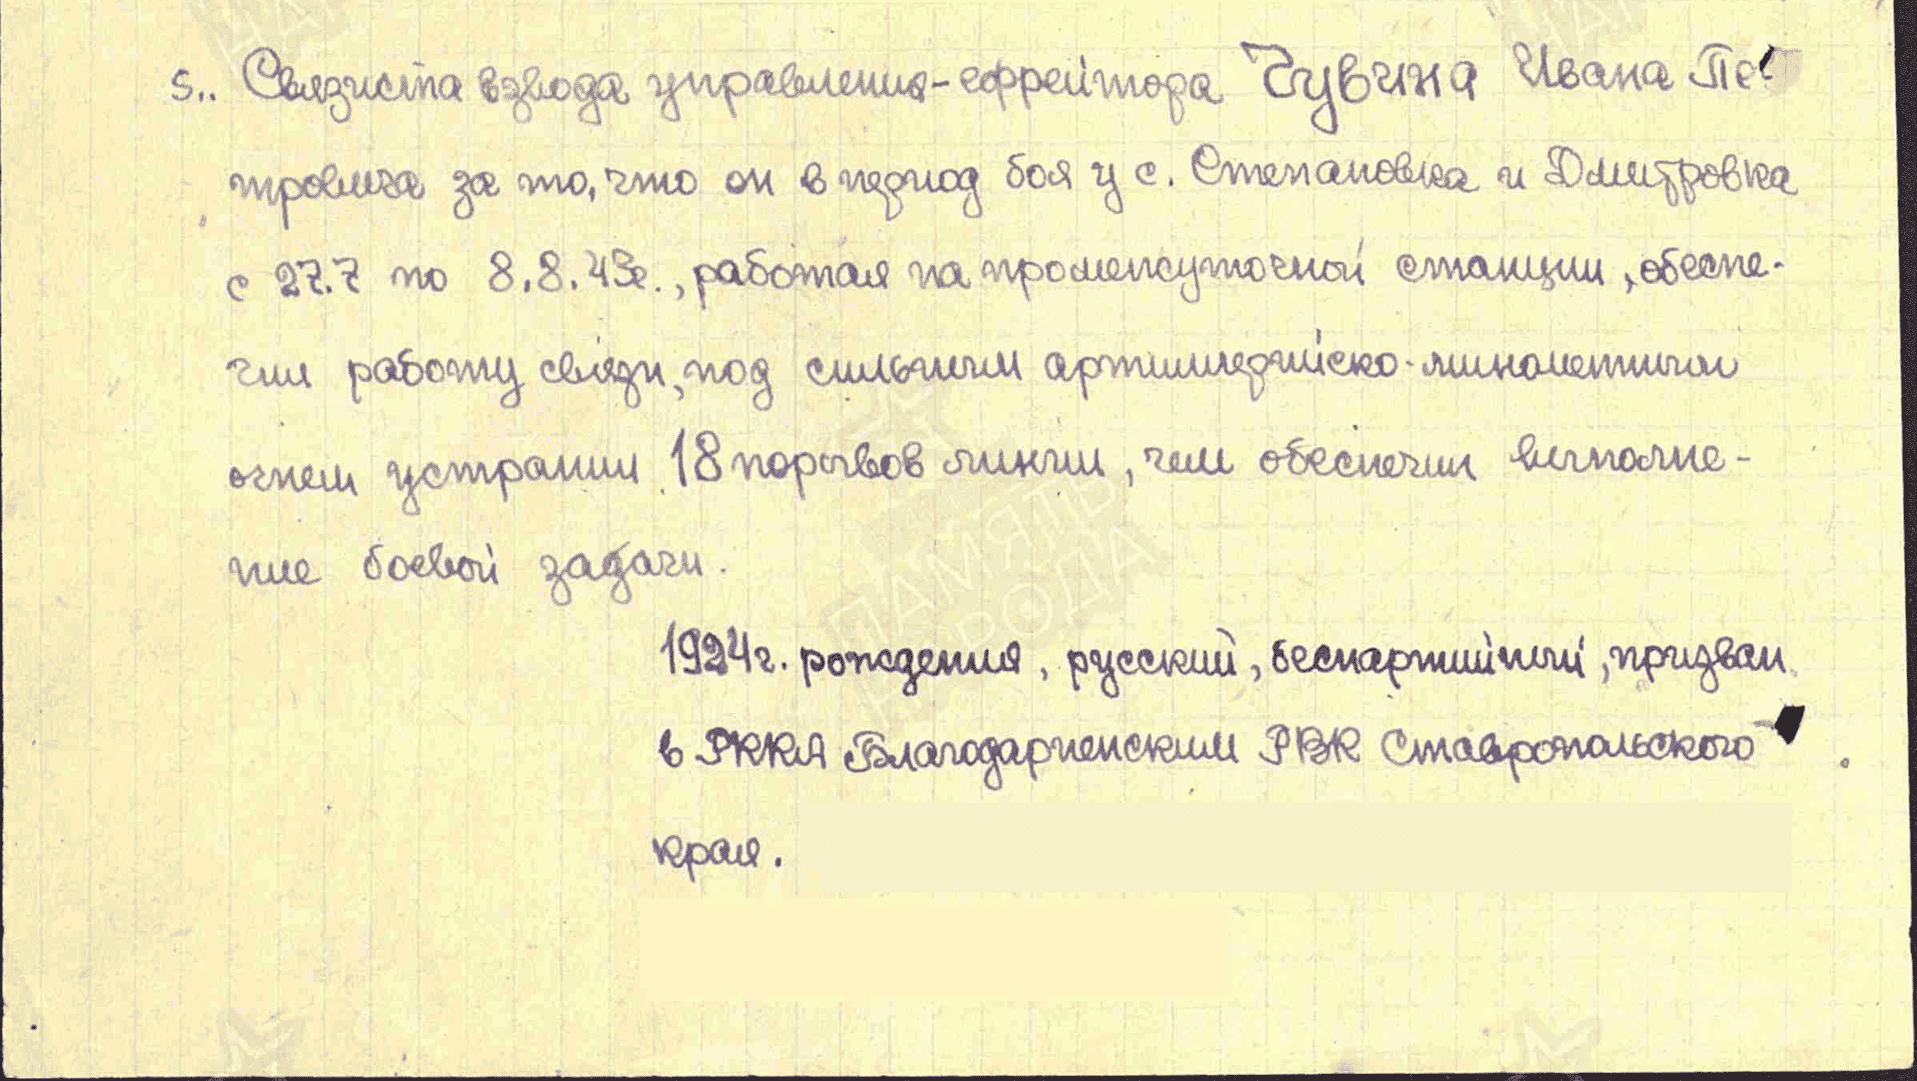 5.. Связиста взвода управления-ефрейтора Чувина Ивана Пе-
тровича за то, что он в период боя у с. Степановка и Дмитровка
с 27.7 по 8.8.43г., работая на промежуточной станции, обеспе-
чил работу связи, под сильным артиллерийско-минометным
огнем устранил 18 порывов линии, чем обеспечил выполне-
ние боевой задачи.
ПАМЯТЬ
НАРОДА
1924г. рождения, русский, беспартийный, призван
в РККА Благодарненским РВК Ставропольского
края.